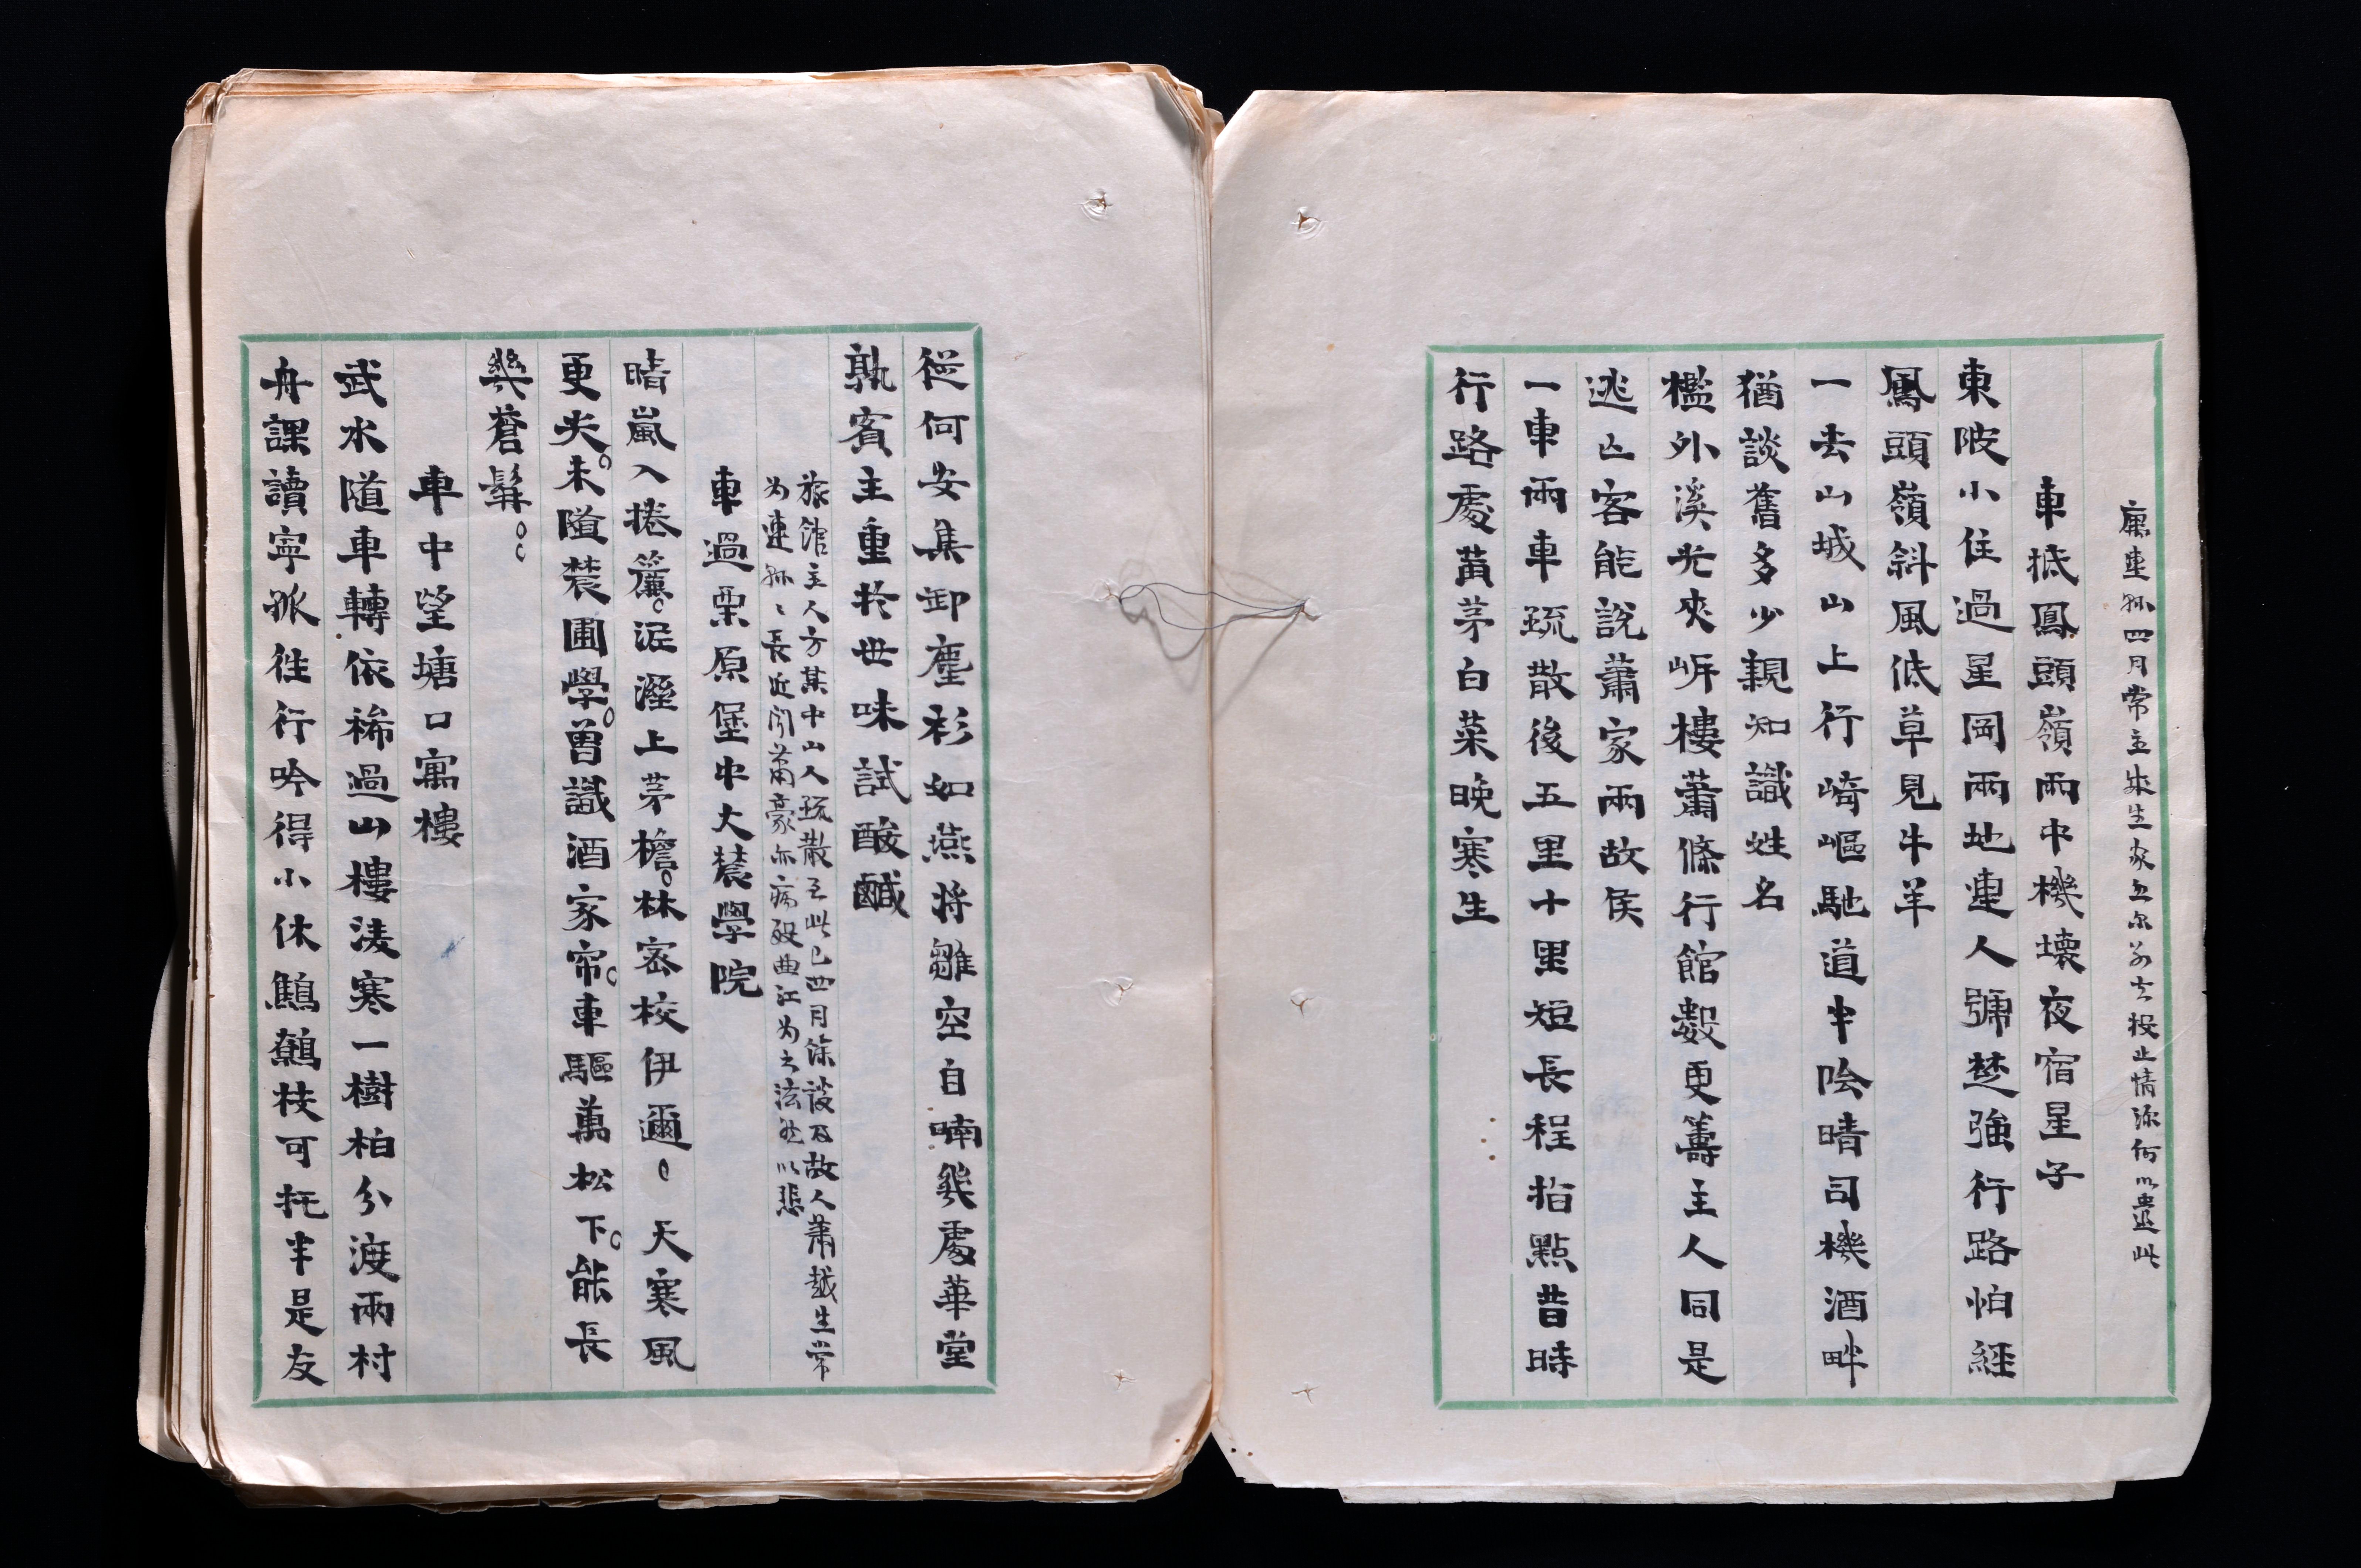 寓連縣四月常主朱生家五尔前去投止情深何以遣此
車抵鳳頭嶺雨中機壞夜宿星子
東陂小住過星岡兩地連人號楚強行路怕經
鳳頭嶺斜風低草見牛羊
一去山城山上行崎嶇馳道半陰晴司機酒畔
猶談舊多少親知識姓名
檻外溪光夾岍樓蕭條行館數更籌主人同是
逃亡客能說蕭家兩故侯
一車兩車疏散後五里十里短長程指點昔時
行路處黃茅白菜晚寒生
從何安集卸塵衫如燕將雛空自喃幾處華堂
孰賓主重於世味試酸鹹
旅館主人方某中山人疏散至此已四月馀談及故人蕭越生常
为連縣縣長近聞蕭豪亦病歿曲江为之泫然以悲
車過栗原堡中大農學院
晴嵐入捲簾。泥溼上茅檐。林密校伊邇。天寒風
更尖。未隨農圃學。曾識酒家帘。車驅萬松下。能長
幾蒼髯。
車中望塘口寓樓
武水隨車轉依稀過山樓淒寒一樹柏分渡兩村
舟課讀寧孤往行吟得小休鷦鷯枝可托半是友